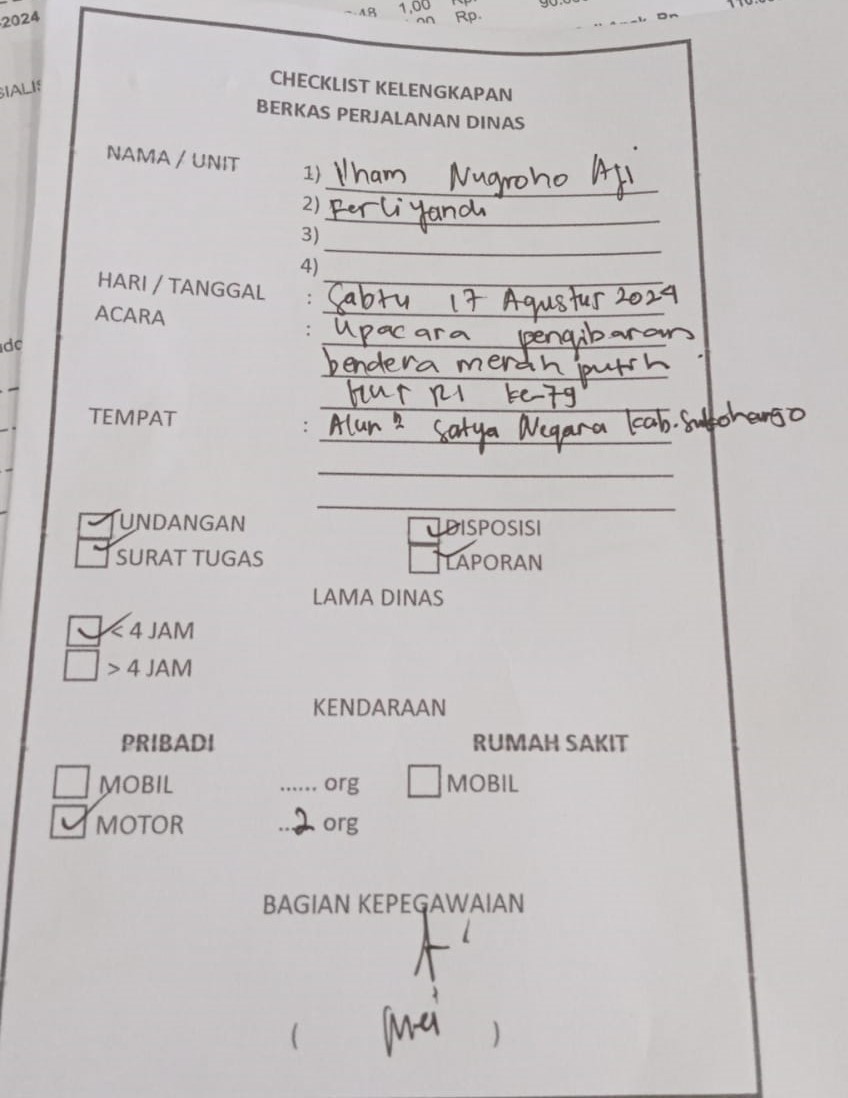 2024
48 1,00 Rp.
SIALIS
CHECKLIST KELENGKAPAN
BERKAS PERJALANAN DINAS
NAMA / UNIT 1) Ilham Nugroho Aji
2) Ferliyandi
3)
4)
HARI / TANGGAL : Sabtu 17 Agustus 2024
ACARA : Upacara pengibaran
bendera merah putih
hut RI ke-79
TEMPAT : Alun² Satya Negara kab. Sukoharjo
UNDANGAN DISPOSISI
SURAT TUGAS LAPORAN
LAMA DINAS
< 4 JAM
> 4 JAM
KENDARAAN
PRIBADI RUMAH SAKIT
MOBIL ...... org MOBIL
MOTOR ..2 org
BAGIAN KEPEGAWAIAN
( Mei )